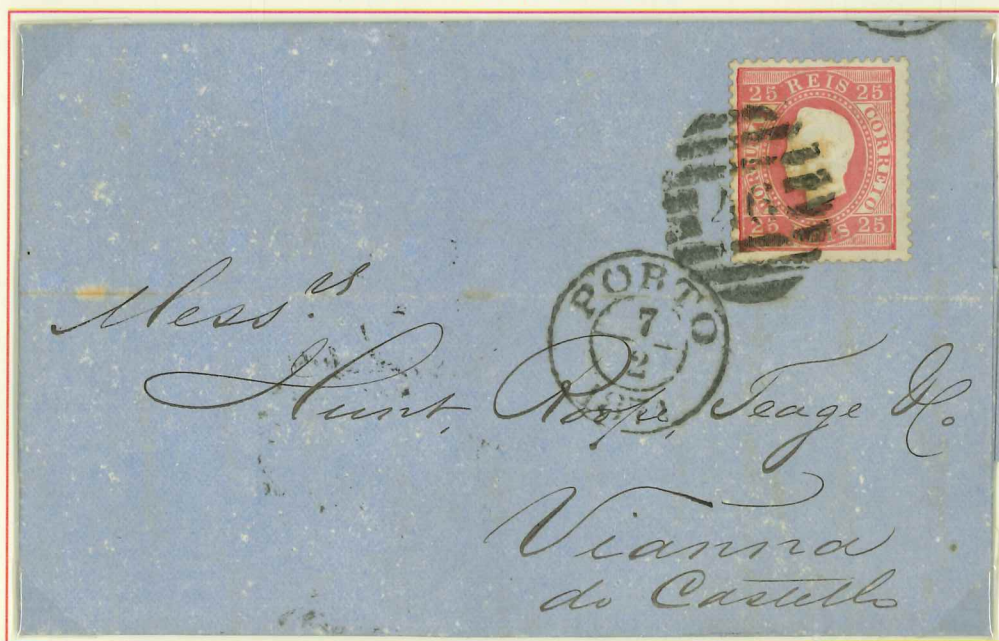 25 REIS 25
CORREIO
25 25
PORTO
7
Mess.rs
Hunt, Rope, Teage & Co.
Vianna
do Castello